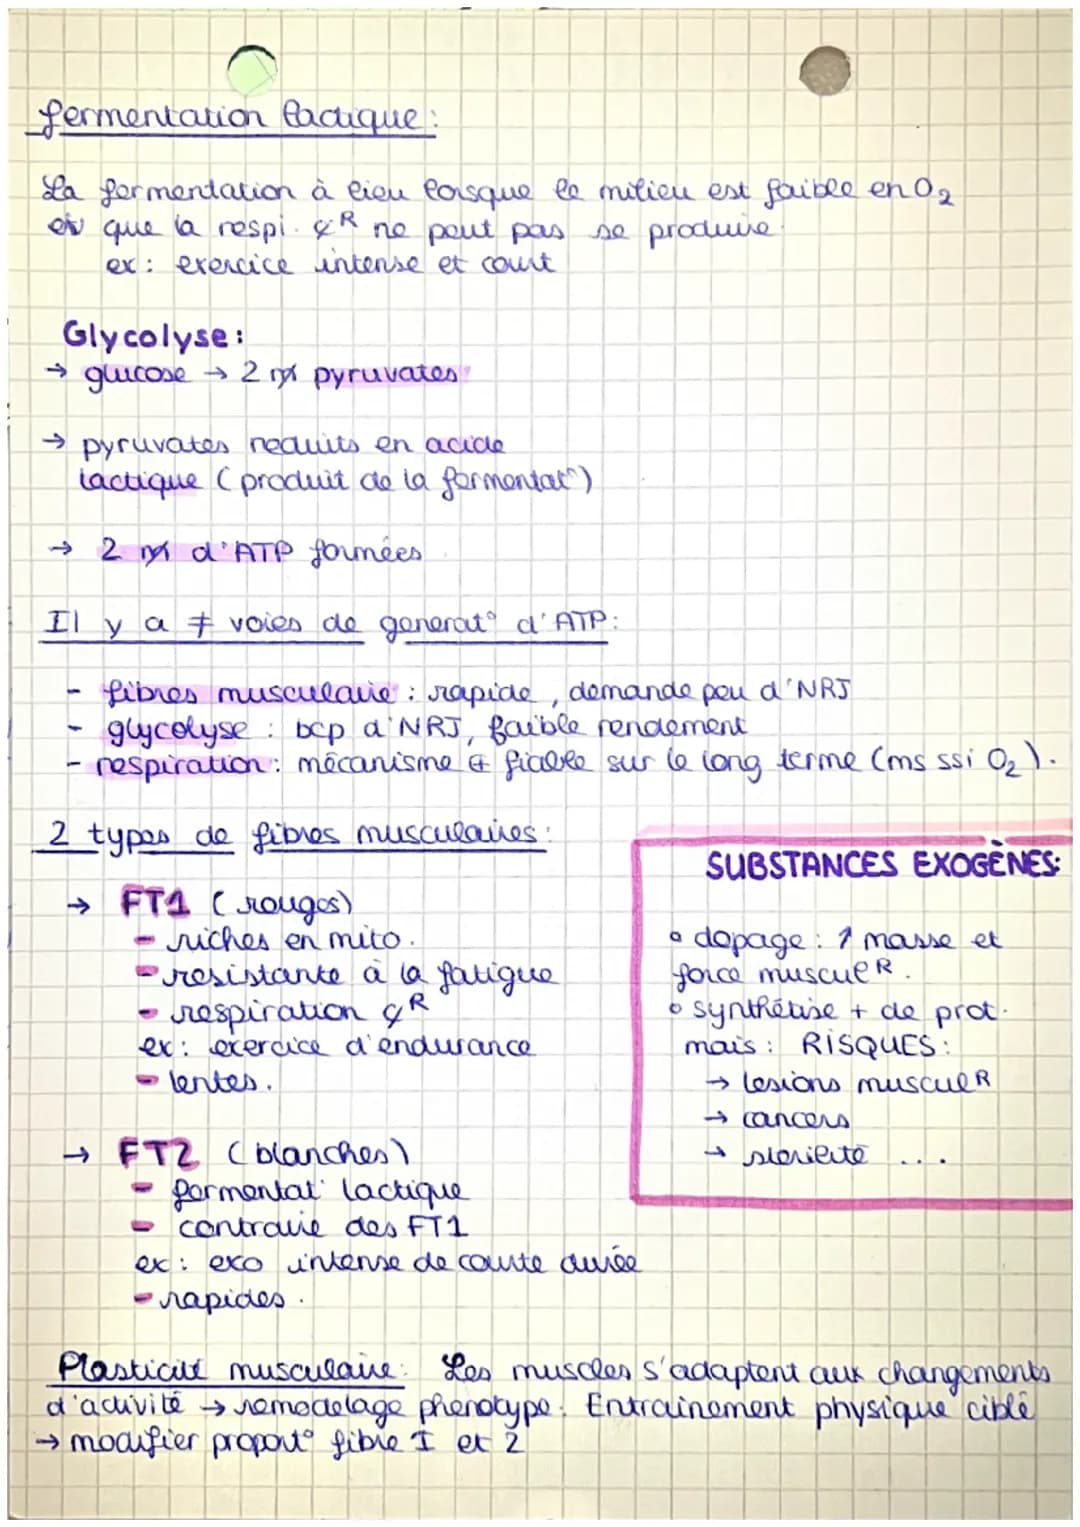 fermentation lactique :
La fermentation à lieu lorsque le milieu est faible en O₂
et que la respi. ȼR ne peut pas se produire.
ex : exercice intense et court
Glycolyse :
→ glucose → 2 pyruvates
→ pyruvates reduits en acide
lactique (produit de la fermentat°)
→ 2 d'ATP formées.
Il y a ≠ voies de generat° d'ATP :
- fibres musculaire : rapide, demande peu d'NRJ
- glycolyse : bcp d'NRJ, faible rendement
- respiration : mécanisme ⊕ fiable sur le long terme (ms ssi O₂).
2 types de fibres musculaires :
→ FT1 (rouges)
- riches en mito.
- resistante à la fatigue
- respiration ȼR
ex : exercice d'endurance
- lentes.
→ FT2 (blanches)
- fermentat° lactique
- contraire des FT1
ex : exo intense de courte durée
- rapides.
SUBSTANCES EXOGÈNES :
• dopage : ↑ masse et
force musculR.
• synthétise + de prot.
mais : RISQUES :
→ lesions musculR
→ cancers
→ sterilité ...
Plasticité musculaire : Les muscles s'adaptent aux changements
d'activité → remodelage phenotype : Entrainement physique ciblé
→ modifier proport° fibre I et 2